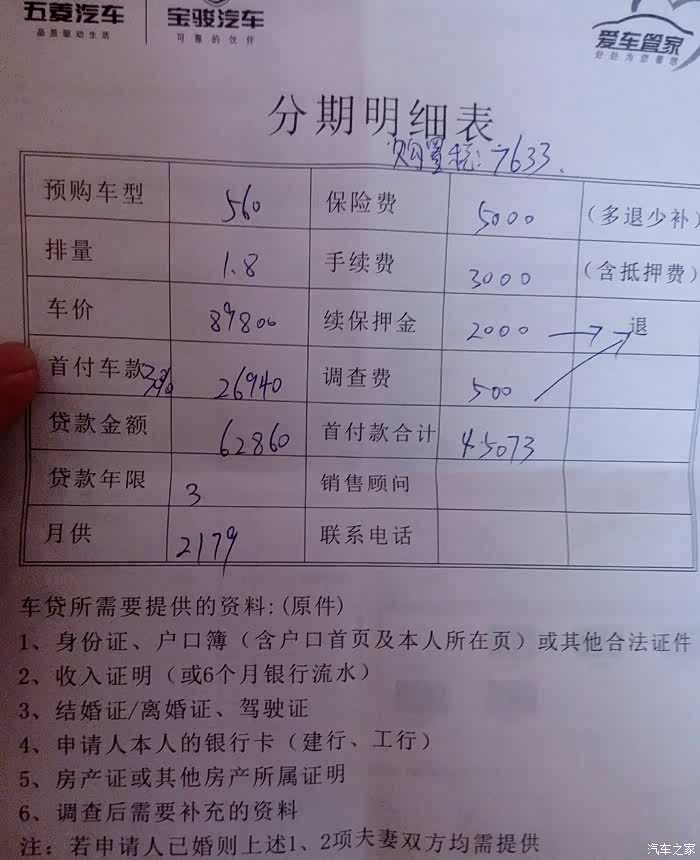 五菱汽车 宝骏汽车
品质驱动生活 可靠的伙伴
爱车管家
处处为您着想
分期明细表
购置税：7633.
预购车型 560 保险费 5000 (多退少补)
排量 1.8 手续费 3000 (含抵押费)
车价 89800 续保押金 2000 退
首付车款30% 26940 调查费 500
贷款金额 62860 首付款合计 45073
贷款年限 3 销售顾问
月供 2179 联系电话
车贷所需要提供的资料:(原件)
1、身份证、户口簿（含户口首页及本人所在页）或其他合法证件
2、收入证明（或6个月银行流水）
3、结婚证/离婚证、驾驶证
4、申请人本人的银行卡（建行、工行）
5、房产证或其他房产所属证明
6、调查后需要补充的资料
注：若申请人已婚则上述1、2项夫妻双方均需提供
汽车之家